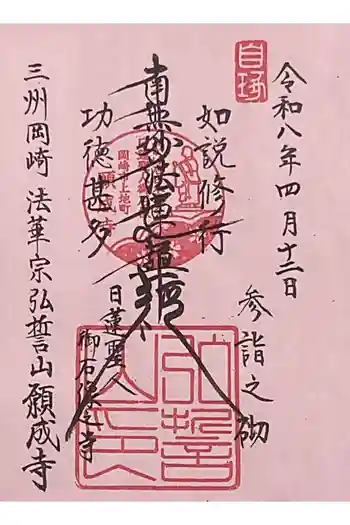 令和八年四月十二日
参詣之砌
如説修行
南無妙法蓮華経
功徳甚多
日蓮聖人
御石
寺
三州岡崎 法華宗弘誓山願成寺
岡崎市上地町
弘誓